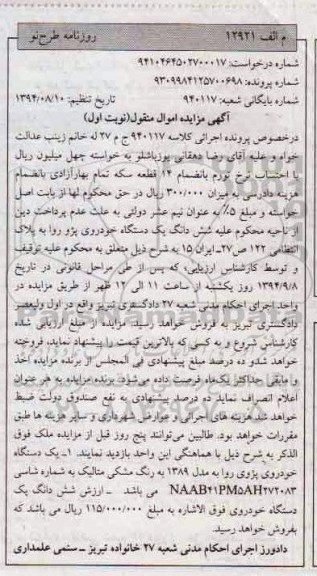 م الف ۱۲۹۲۱ روزنامه طرح‌نو
شماره درخواست: ۹۴۱۰۴۶۴۵۰۲۷۰۰۰۱۷
شماره پرونده: ۹۳۰۹۹۸۴۱۲۵۷۰۰۶۹۸
شماره بایگانی شعبه: ۹۴۰۱۱۷ تاریخ تنظیم: ۱۳۹۴/۰۸/۱۰
آگهی مزایده اموال منقول(نوبت اول)
درخصوص پرونده اجرائی کلاسه ۹۴۰۱۱۷ ج م ۲۷ له خانم زینب عدالت
خواه و علیه آقای رضا دهقانی پورباشلو به خواسته چهل میلیون ریال
با احتساب نرخ تورم بانضمام ۱۴ قطعه سکه تمام بهارآزادی بانضمام
هزینه دادرسی به میزان ۳۰۰/۰۰۰ ریال در حق محکوم لها از بابت اصل
خواسته و مبلغ ۵٪ به عنوان نیم عشر دولتی به علت عدم پرداخت دین
از ناحیه محکوم علیه شش دانگ یک دستگاه خودروی پژو روا به پلاک
انتظامی ۱۲۲ ص۲۷-ایران ۱۵ به شرح ذیل متعلق به محکوم علیه توقیف
و توسط کارشناس ارزیابی، که پس از طی مراحل قانونی در تاریخ
۱۳۹۴/۹/۸ روز یکشنبه از ساعت ۱۱ الی ۱۲ ظهر از طریق مزایده در
واحد اجرای احکام مدنی شعبه ۲۷ دادگستری تبریز واقع در اول ولیعصر
دادگستری تبریز به فروش خواهد رسید. مزایده از مبلغ ارزیابی شده
کارشناس شروع و به کسی که بالاترین قیمت را پیشنهاد نماید، فروخته
خواهد شدو ده درصد مبلغ پیشنهادی فی المجلس از برنده مزایده اخذ
و مابقی حداکثر یک‌ماه فرصت داده می‌شود. برنده مزایده به هر عنوان
اعلام انصراف نماید ده درصد پیشنهادی به نفع صندوق دولت ضبط
خواهد شد. هزینه های اجرائی و عوارض شهرداری و سایر هزینه ها طبق
مقررات خواهد بود. طالبین می‌توانند پنج روز قبل از مزایده ملک فوق
الذکر به شرح ذیل با هماهنگی این واحد بازدید نمایند. ۱ـ یک دستگاه
خودروی پژوی روا به مدل ۱۳۸۹ به رنگ مشکی متالیک به شماره شاسی
NAAB۴۱PM۵AH۲۷۲۰۸۳ می باشد ـ ارزش شش دانگ یک
دستگاه خودروی فوق الاشاره به مبلغ ۱۱۵/۰۰۰/۰۰۰ ریال می باشد که
بفروش خواهد رسید.
دادورز اجرای احکام مدنی شعبه ۲۷ خانواده تبریز ـ ستمی علمداری